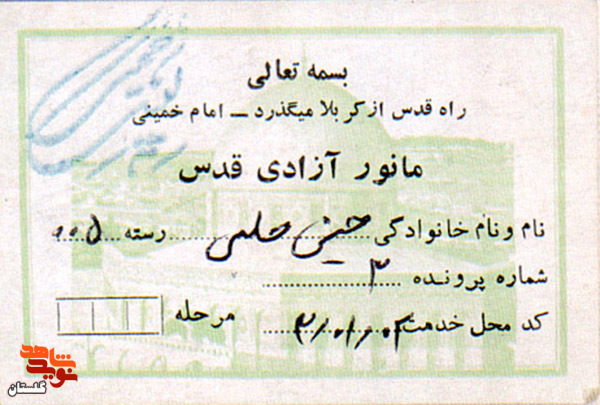 بسمه تعالی
راه قدس از کربلا میگذرد ــ امام خمینی
مانور آزادی قدس
نام و نام خانوادگی حسینی حلمی رسته ۰۰۵
شماره پرونده ۳
کد محل خدمت ۳/۰۱/۰۲ مرحله
نوید شاهد
گلستان